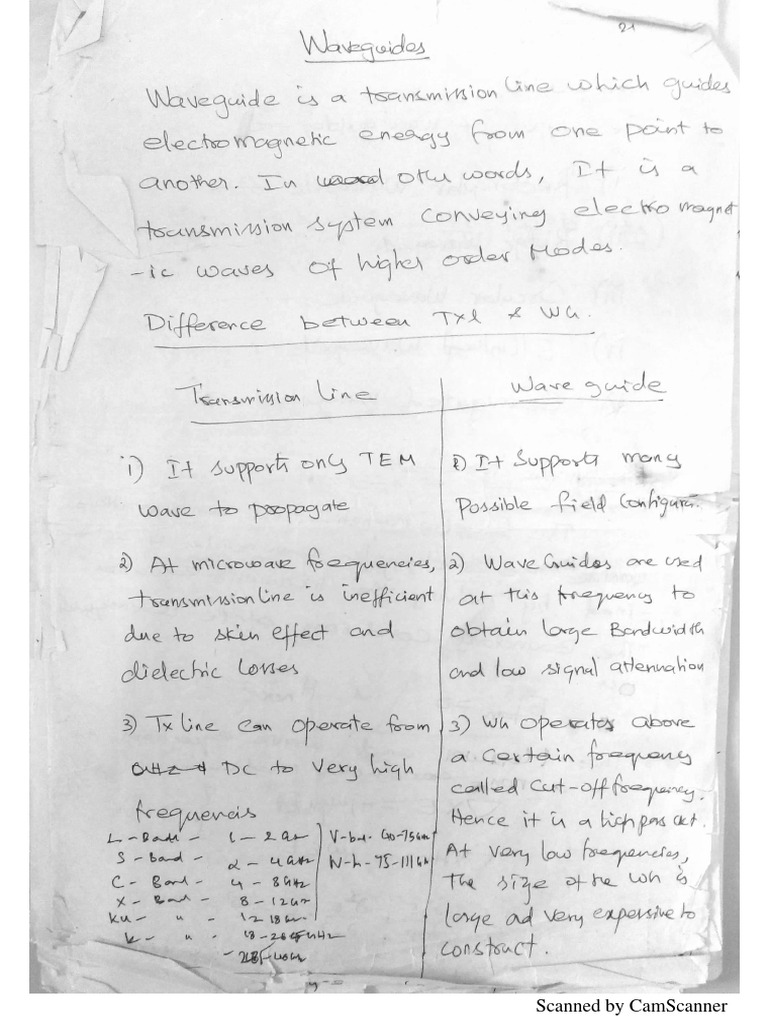 21
Waveguides
Waveguide is a transmission line which guides
electromagnetic energy from one point to
another. In other words, It is a
transmission system conveying electromagnet
-ic waves of higher order Modes.
Difference between Txl & WG.
Transmission line
1) It supports only TEM
wave to propagate
2) At microwave frequencies,
transmission line is inefficient
due to skin effect and
dielectric losses
3) Tx line can operate from
DC to very high
frequencies
Wave guide
1) It supports many
possible field configura.
2) Wave Guides are used
at this frequency to
obtain large Bandwidth
and low signal attenuation
3) WG operates above
a certain frequency
called cut-off frequency.
Hence it is a high pass ckt.
At very low frequencies,
the size of the WG is
large ad very expensive to
construct.
L - Band - 1 - 2 GHz
S - band - 2 - 4 GHz
C - Band - 4 - 8 GHz
X - Band - 8 - 12 GHz
Ku - " 12 18 GHz
K - " 18 -
V - band - 60 - 75 GHz
Scanned by CamScanner